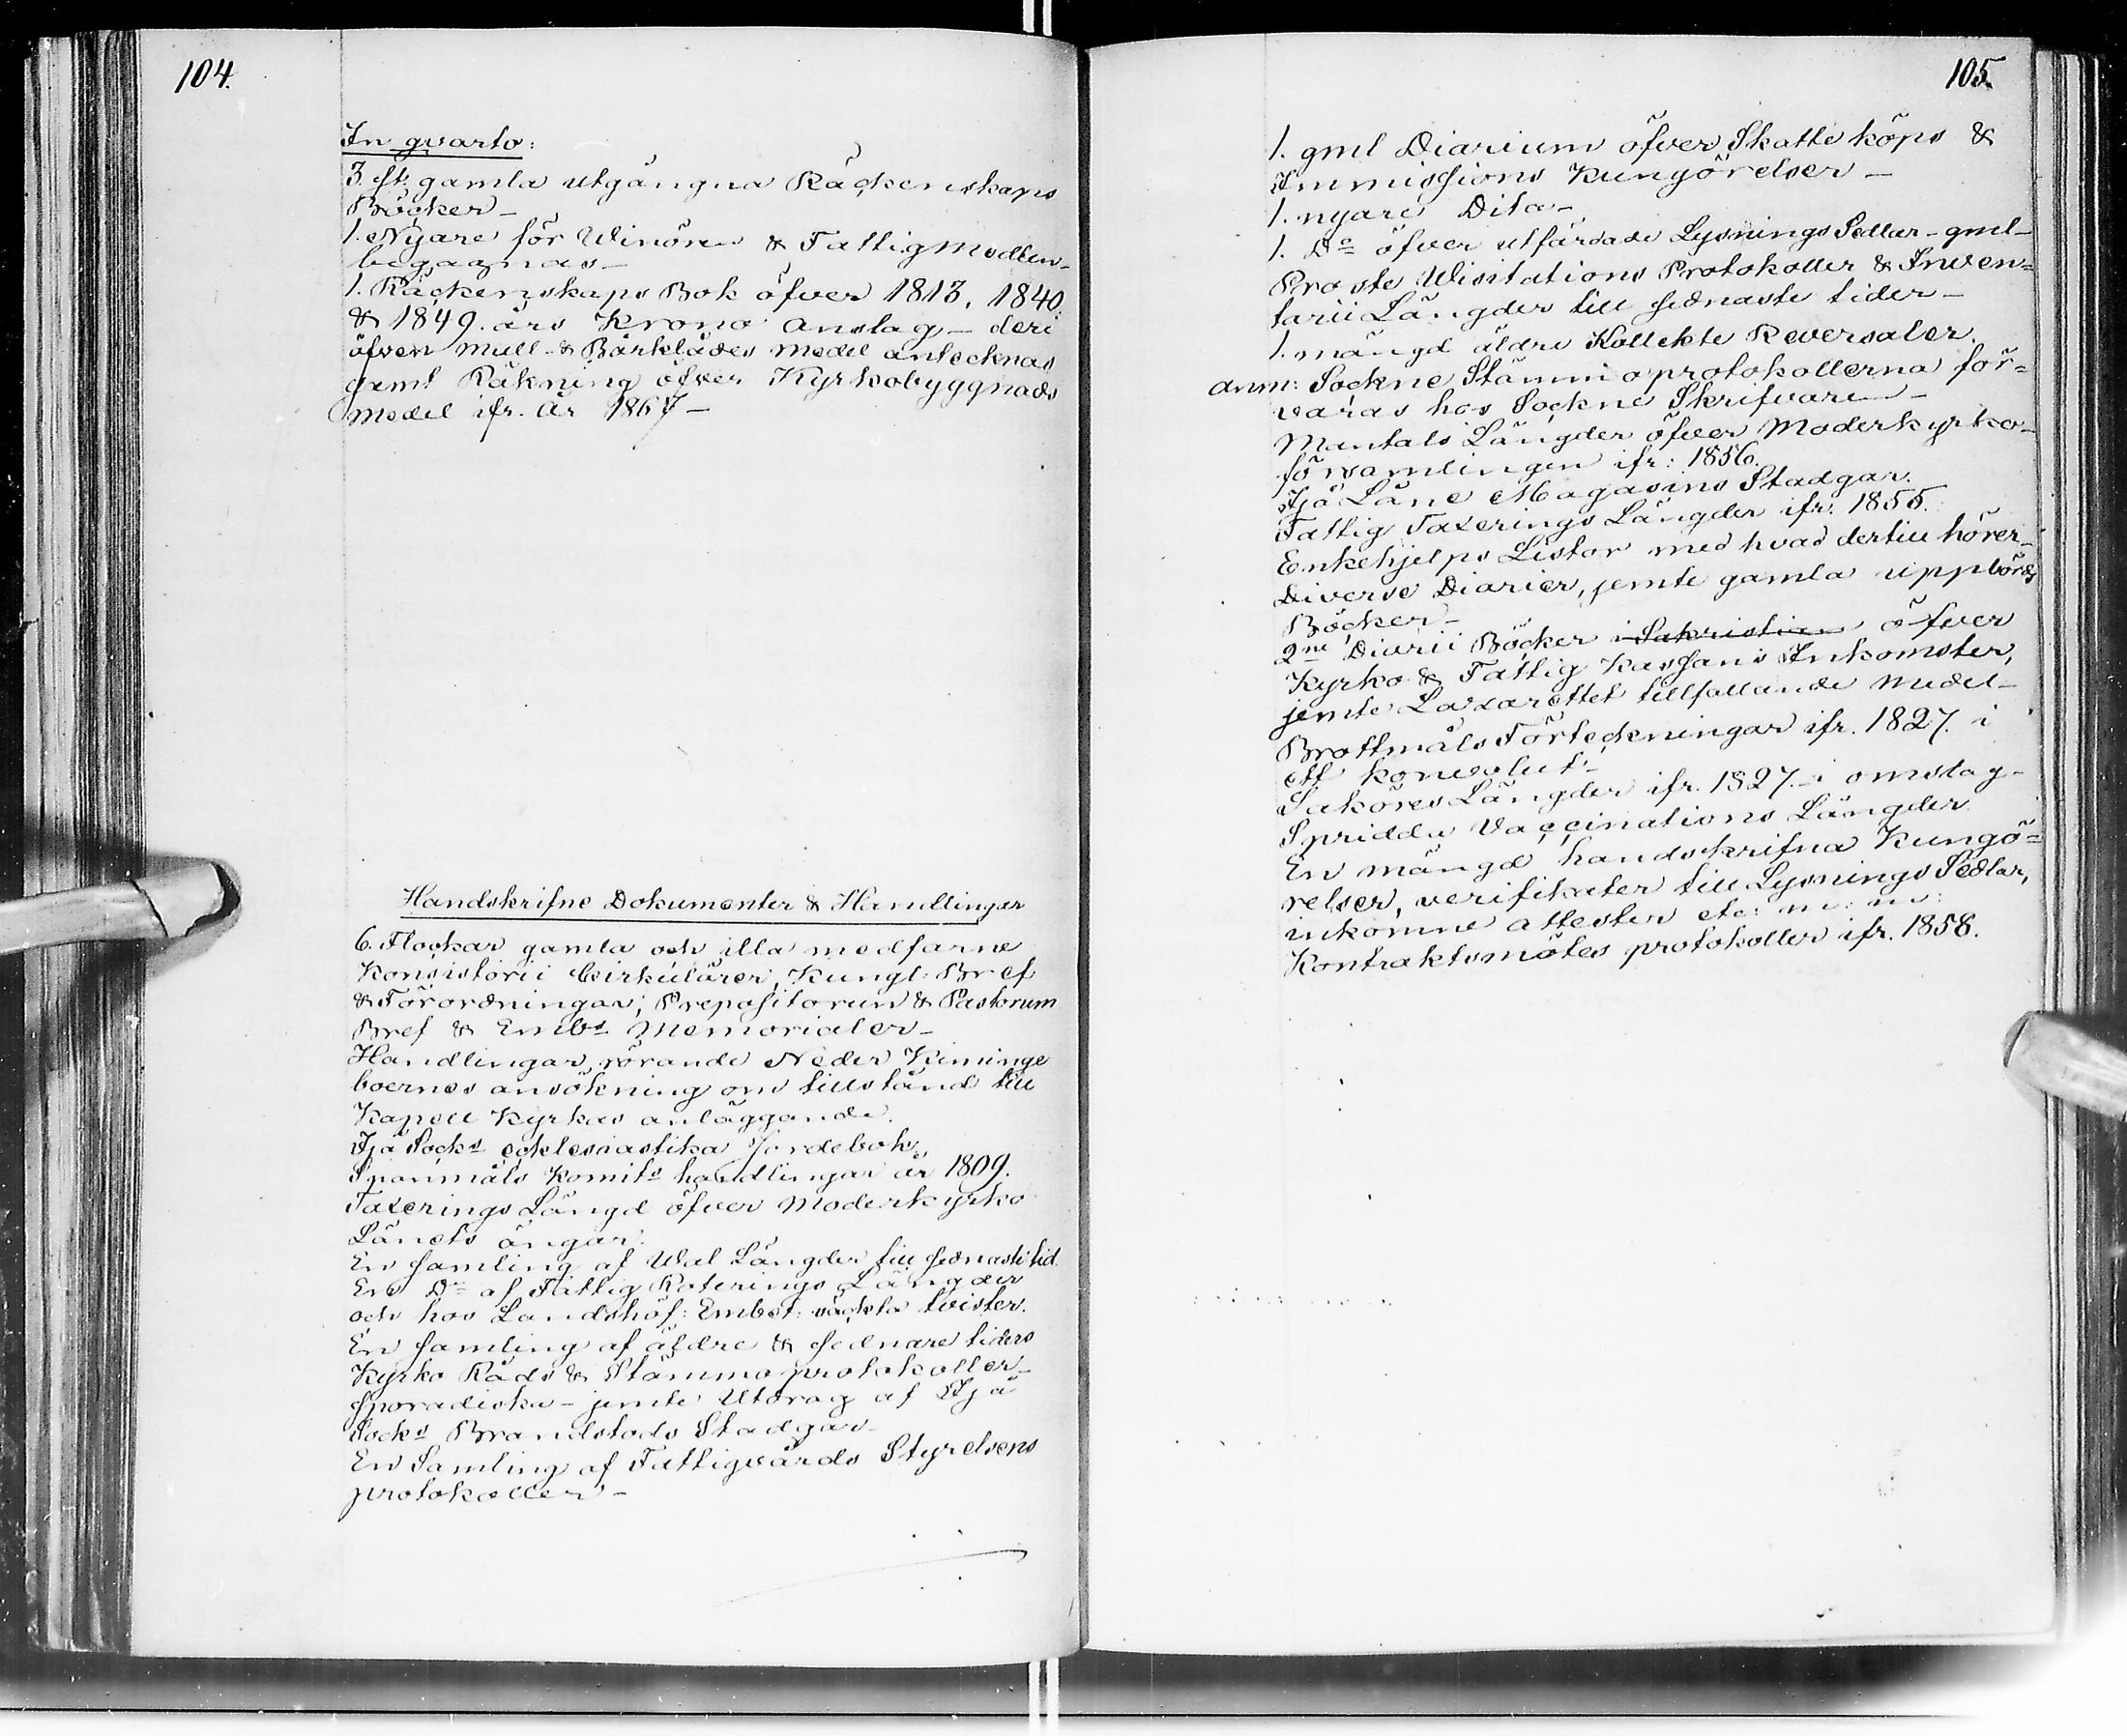 104.
In qvarto:
3. st. gamla utgångna Räckenskaps
Böcker-
1. Nyare för Winören & Fattigmedlen-
begagnas-
1. Räckenskaps Bok öfver 1813, 1840
& 1849. års Krono anslag - deri
öfven Mull- & Bårklädes medel antecknas
samt Räkning öfver Kyrkobyggnads
medel ifr. År 1867-
Handskrifne Dokumenter & Handlingar
6. Flockar gamla och illa medfarne
Konsistorii Cirkulärer, Kungl: Bref
& Förordningar; Prepositorum & Pastorum
Bref & Embs Memorialer-
Handlingar rörande Neder Kiminge
boernes ansökning om tillstånd till
Kapell Kyrkas anläggande.
Ijå Socks ecklesiastika Jordebok,
Spanmåls Komits handlingar år 1809.
Taxerings Längd öfver Moderkyrko
Länets ängar.
En samling af Wal Längder till sednaste tid.
En Do af Fattig Roterings Längder
och hos Landshöf: Embet: väckta tvister.
En samling af äldre & sednare tiders
Kyrko Råds & Stämmo protokoller-
sporadiska - jemte Utdrag af Ijå
Socks Brandstods Stadgar-
En Samling af Fattigvårds Styrelsens
protokoller-
105.
1. gml Diarium öfver Skatte köps &
Immissions Kungörelser-
1. nyare Dito-
1. Do öfver utfärdade Lysnings Sedlar - gml-
Proste Visitations Protokoller & Inven=
tarii Längder till sednaste tider-
1. mängd äldre Kollekte Reversaler.
anm: Sockne Stämmo protokollerna för=
varas hos Sockne Skrifvaren-
Mantals Längder öfver Moderkyrko-
församlingen ifr: 1856.
Ijå Låne Magasins Stadgar.
Fattig Taxerings Längder ifr: 1855.
Enkehjelps Listor med hvad dertill hörer-
Diverse Diarier, jemte gamla uppbörds
Böcker-
2ne Diarii Böcker i Sakristian öfver
Kyrko & Fattig Kassans Inkomster,
jemte Lazarettet tillfallande medel-
Brottmåls Förteckningar ifr. 1827. i
ett konvolut-
Saköres Längder ifr. 1827.- i omslag-
Spridda Vaccinations Längder
En mängd handskrifna Kungö=
relser, verifikater till Lysnings Sedlar,
inkomne attester etc: m: m:
Kontraktsmötes protokoller ifr. 1858.